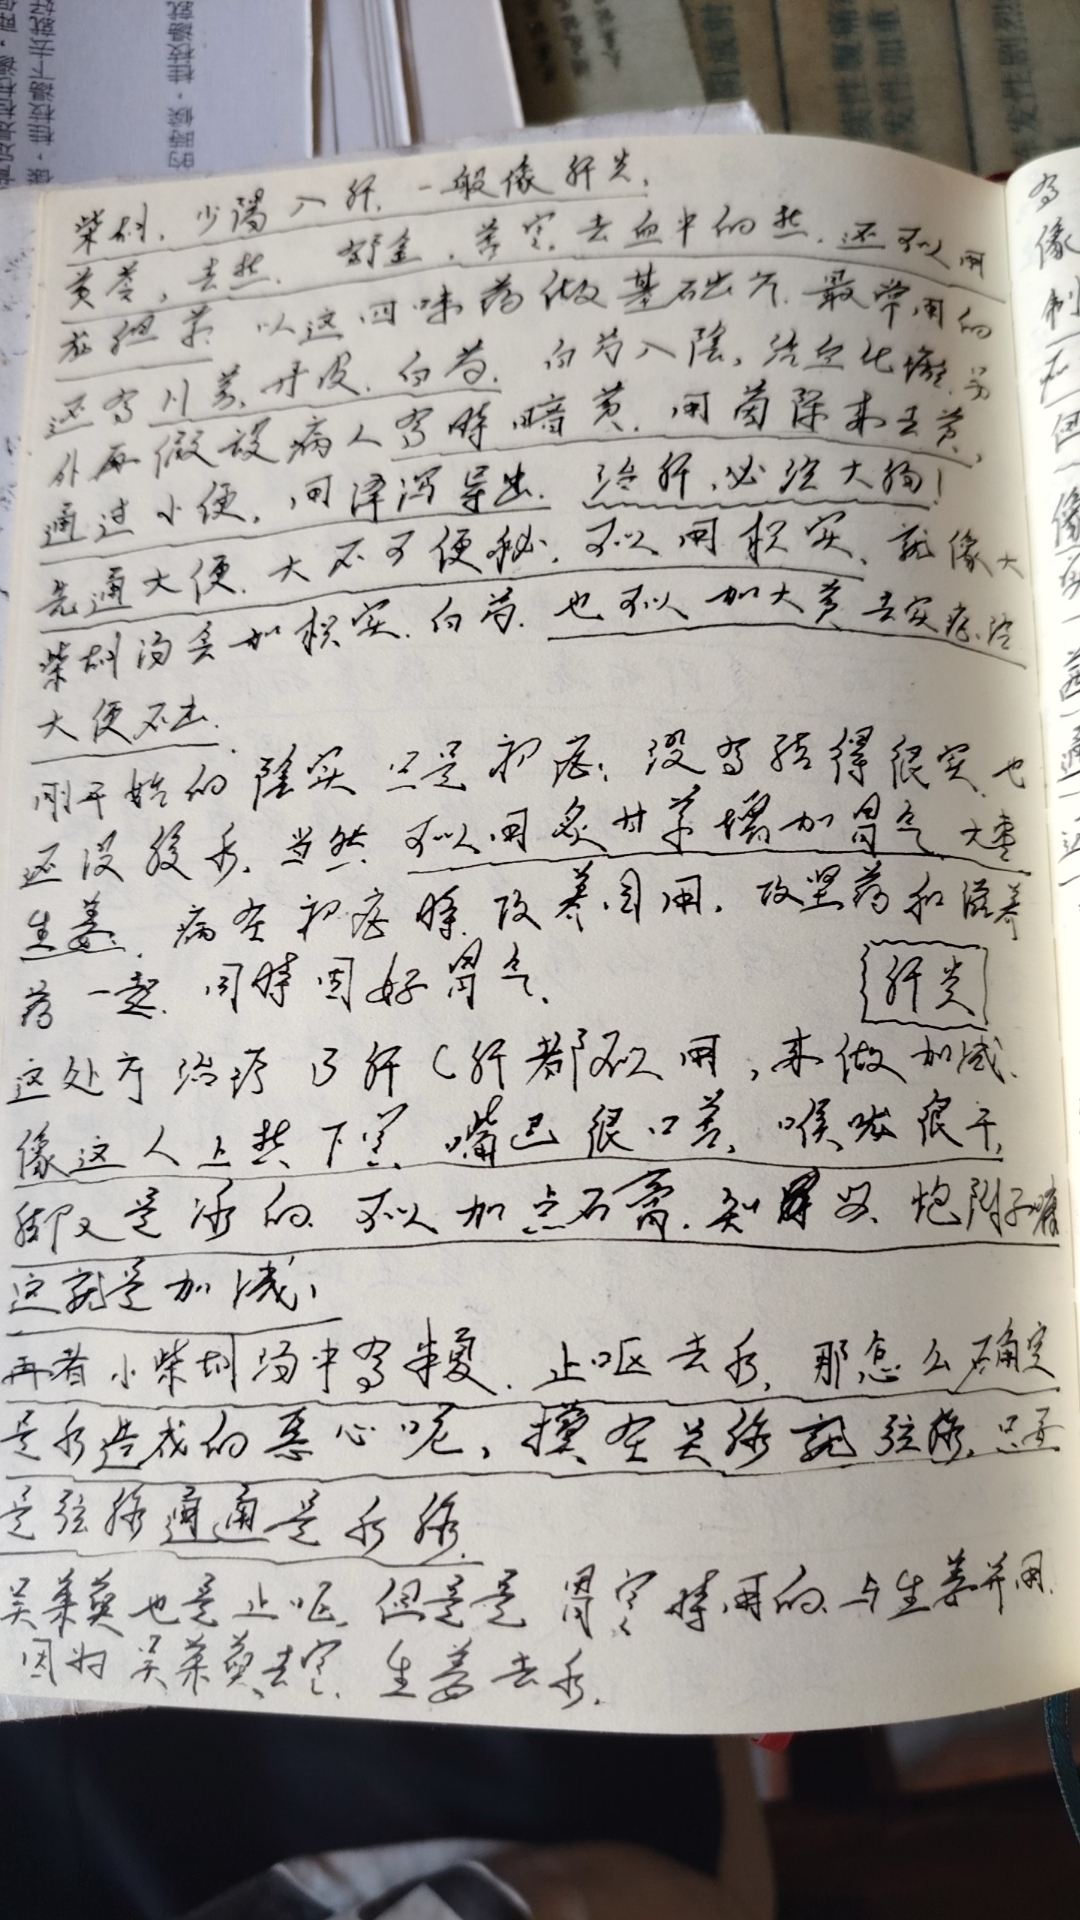 柴胡、少陽入肝、一般像肝炎、
黄芩，去热、 郁金，苦寒、去血中的热、还可以用
龙胆草、以这四味药做基础方、最常用的
还有川芎、丹皮、白芍、白芍入陰，活血化瘀、另
外再假设病人有時暗黄、用茵陈来去黄，
通过小便，用泽泻导出、治肝，必治大肠！
先通大便、大不可便秘，可以用枳实、就像大
柴胡汤会加枳实、白芍、也可以加大黄、去实
大便不出、
刚干始的陰实只是初症；没有結得很实、也
还没腹水、当然、可以用炙甘草增加胃气、大枣
生姜、病在初症時、攻養同用、攻坚药和滋养
药一起、同時固好胃气、
肝炎
这处方治疗B肝C肝都可以用，来做加减、
像这人上热下寒、嘴巴很口苦、喉咙很干，
脚又是冰的、可以加点石膏、知母、炮附子嘛
这就是加减，
再者小柴胡汤中有半夏、止呕去水，那怎么确定
是水造成的恶心呢，摸在关脉就弦脉、只要
是弦脉通通是水脉、
吴茱萸也是止呕、但是是胃寒時用的、与生姜并用、
因为吴茱萸去寒、生姜去水、
有
像
制
的時候，桂枝湯就